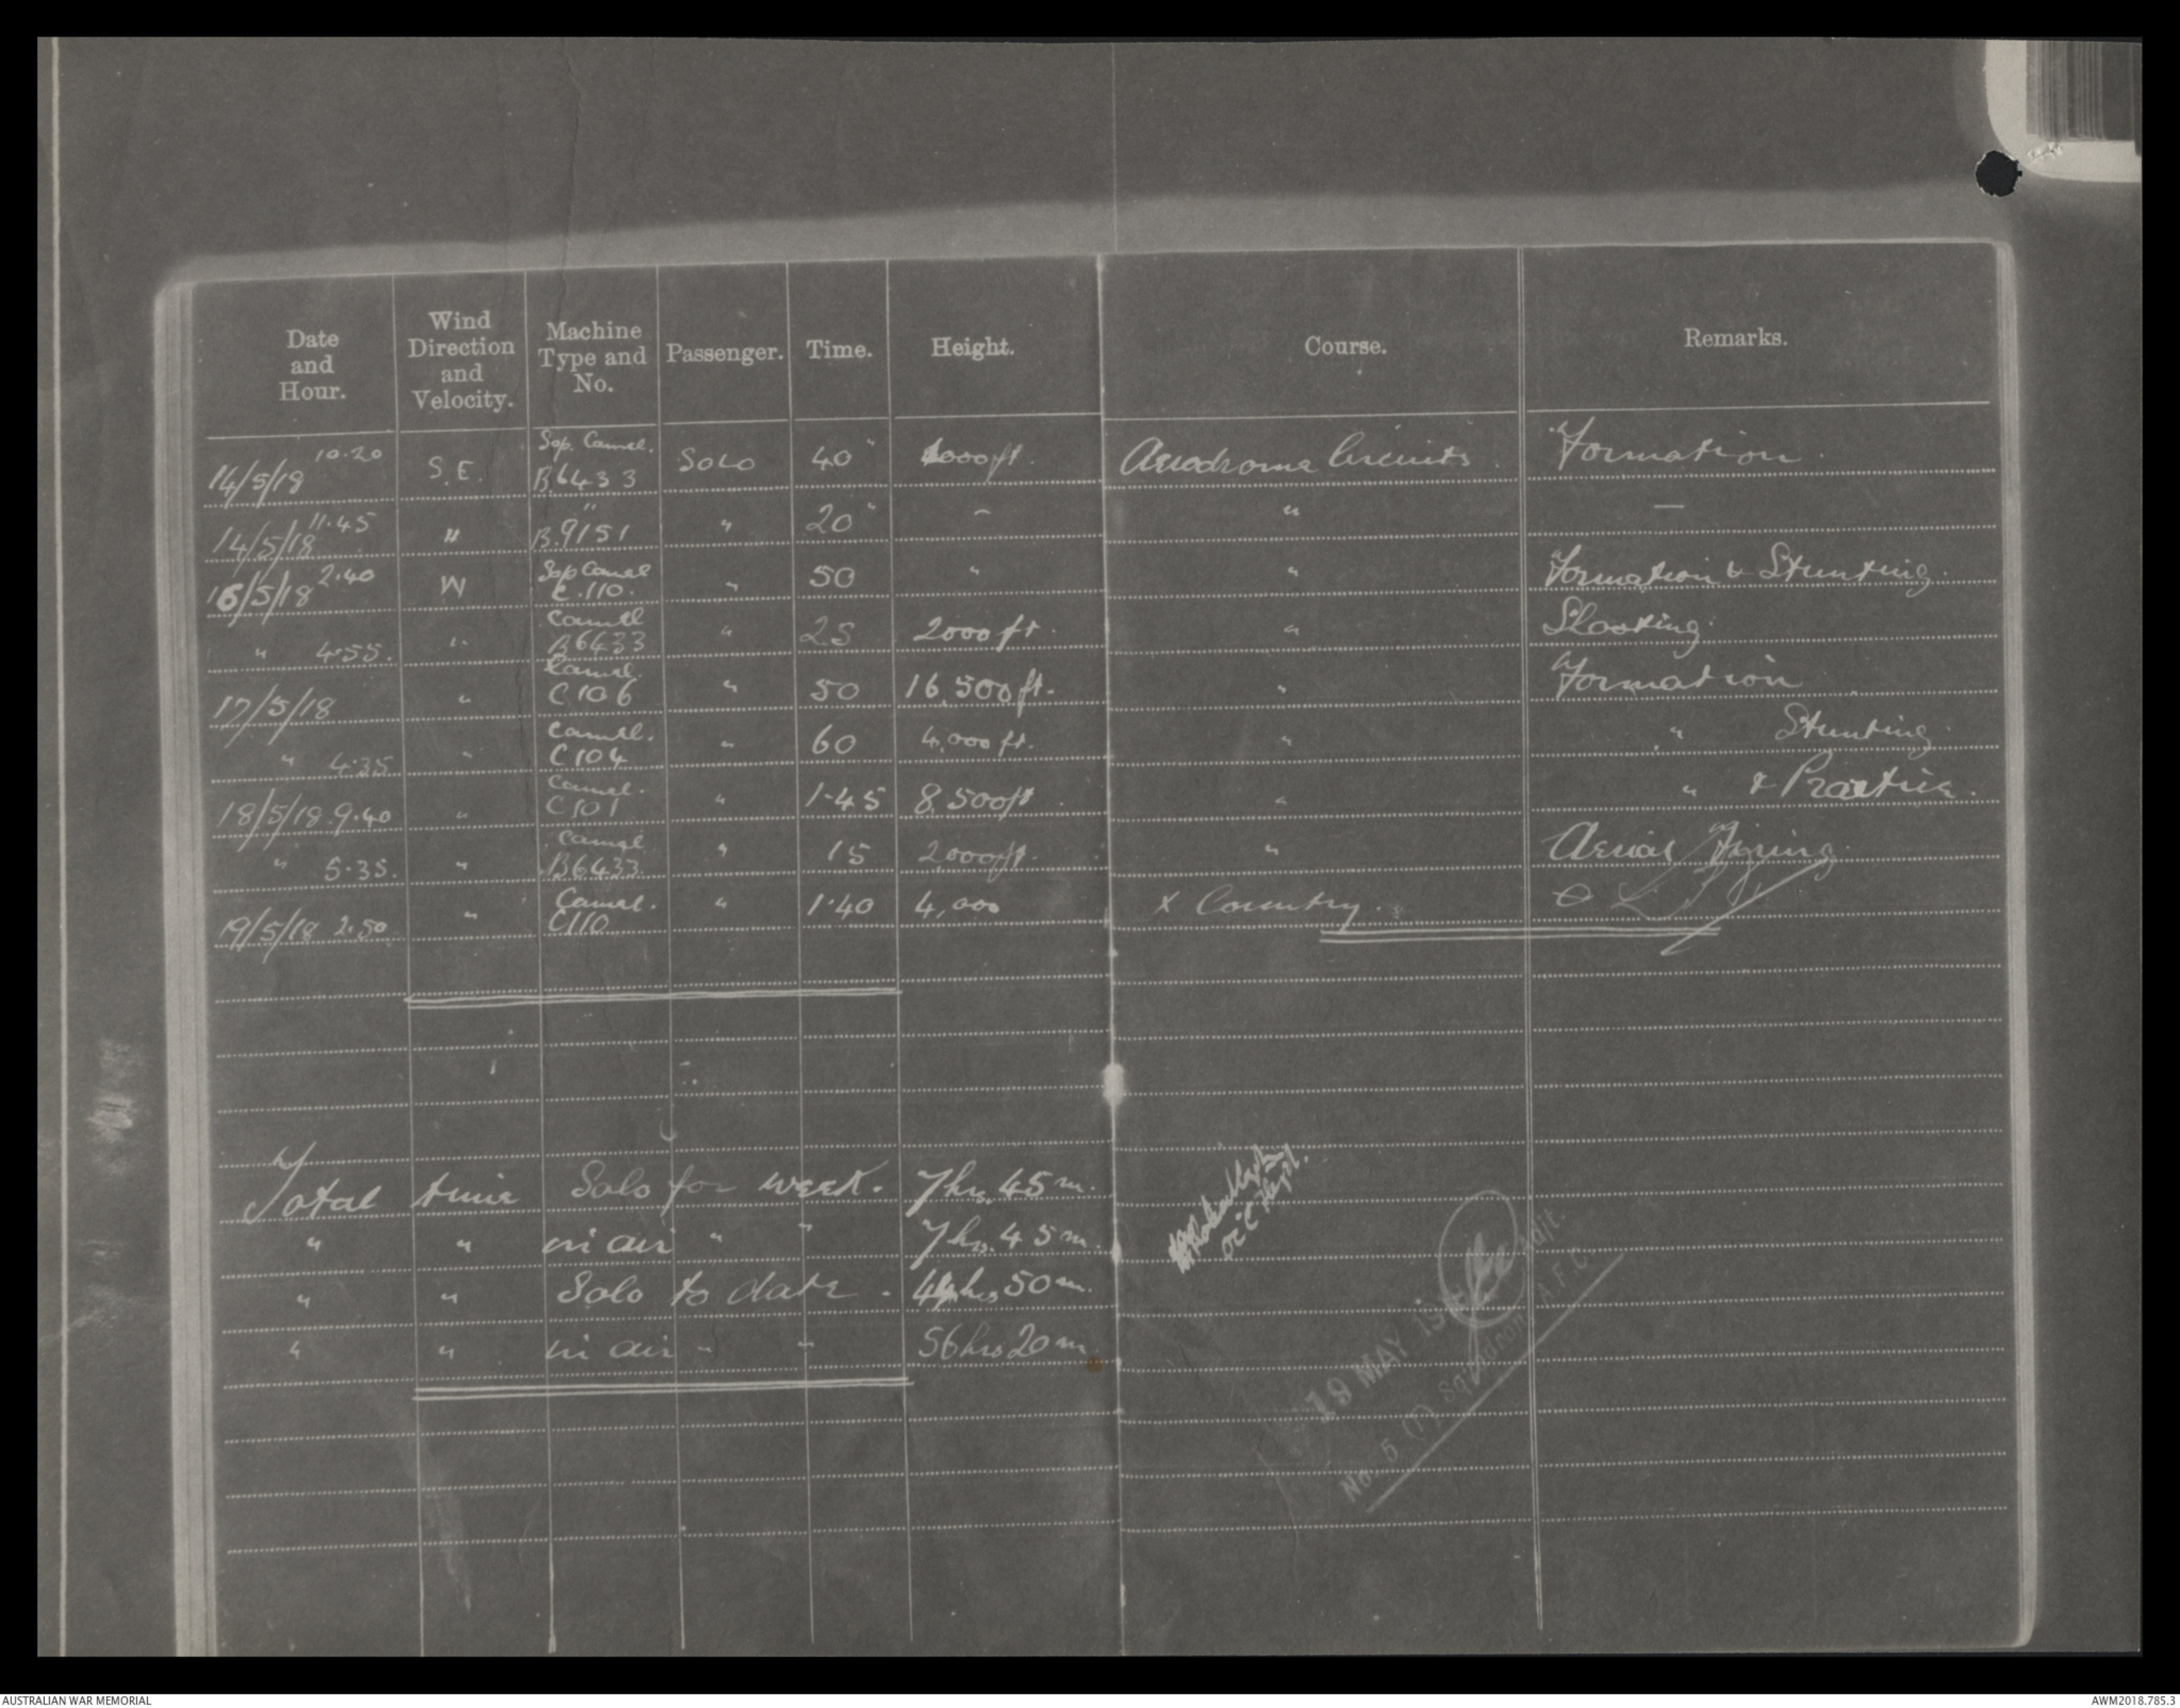 Date and Hour. Wind Direction and Velocity. Machine Type and No. Passenger. Time. Height. Course. Remarks.
14/5/18 10.20 S.E. Sop. Camel. B6433 Solo 40" 1000 ft. Aerodrome Circuits. Formation.
14/5/18 11.45 " " B.9151 " 20" " " —
16/5/18 2.40 W Sop Camel C.110. " 50 " " Formation & Stunting.
" 4.55. " Camel B6433 " 25 2000 ft. "
17/5/18 " Camel. C106 " 50 16,500 ft. " Formation
" 4.35 " Camel. C104 " 60 4,000 ft. " " Stunting.
18/5/18 9.40 " Camel. C101 " 1.45 8,500 ft. " " & Practice.
" 5.35. " Camel B6433 " 15 2000 ft. " Aerial Firing.
19/5/18 2.50 " Camel. C110 " 1.40 4,000 X Country.
Total time Solo for week. 7 hrs. 45 m.
" " in air " " 7 hrs. 45 m.
" " Solo to date. 44 hrs 50 m.
" " in air " " 56 hrs 20 m
Adjt.
19 MAY
No. 5 (T) Squadron A.F.C.
AUSTRALIAN WAR MEMORIAL
AWM2018.785.3